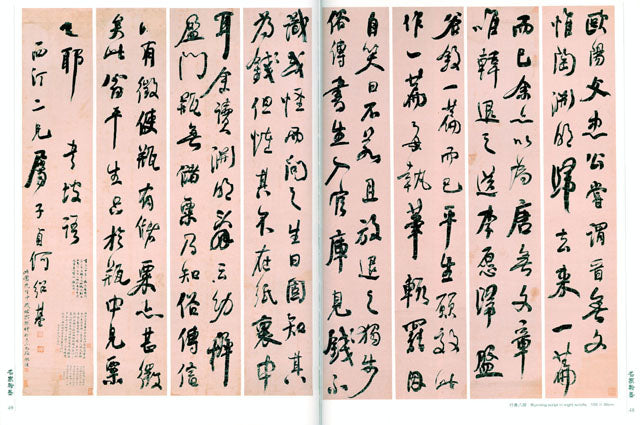 歐陽文忠公嘗謂晉無文
惟陶淵明歸去來一篇
而已余亦以為唐無文章
唯韓退之送李愿歸盤
谷敘一篇而已平生願效此
作一篇每執筆輒罷因
自笑曰不若且放退之獨步
俗傳書生入官庫見錢不
識或怪而問之生曰固知其
為錢但怪其不在紙裏中
耳余讀淵明辭云幼稚
盈門瓶無儲粟乃知俗傳信
有徵使瓶有儲粟亦甚微
矣此翁平生只於瓶中見粟
也耶 書坡語
西汀二兄屬 子貞何紹基
行書八屏 Running script in eight scrolls
名家翰墨
名家翰墨